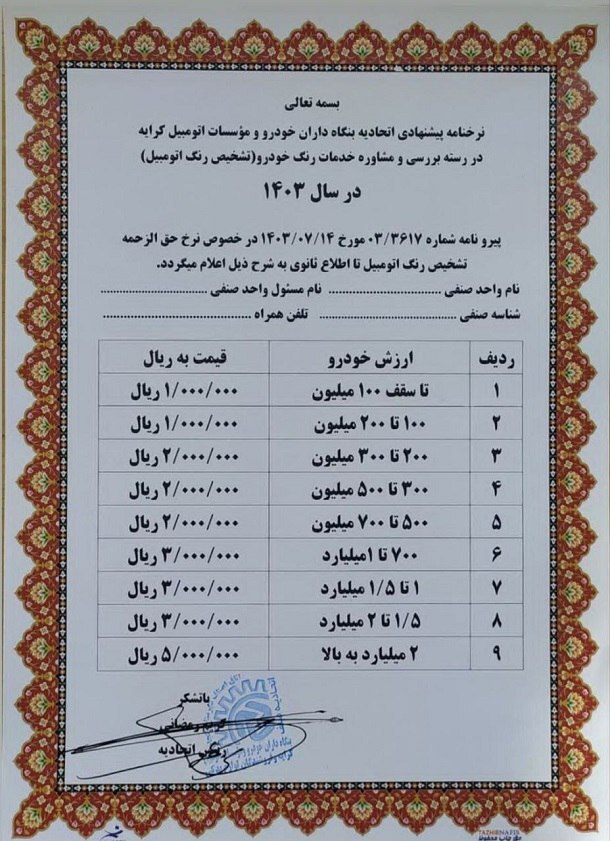 بسمه تعالی
نرخنامه پیشنهادی اتحادیه بنگاه داران خودرو و مؤسسات اتومبیل کرایه
در رسته بررسی و مشاوره خدمات رنگ خودرو(تشخیص رنگ اتومبیل)
در سال ۱۴۰۳
پیرو نامه شماره ۰۳/۳۶۱۷ مورخ ۱۴۰۳/۰۷/۱۴ در خصوص نرخ حق الزحمه
تشخیص رنگ اتومبیل تا اطلاع ثانوی به شرح ذیل اعلام میگردد.
نام واحد صنفی .................................. نام مسئول واحد صنفی ..................................
شناسه صنفی .......................................... تلفن همراه ..............................................
ردیف ارزش خودرو قیمت به ریال
۱ تا سقف ۱۰۰ میلیون ۱/۰۰۰/۰۰۰ ریال
۲ ۱۰۰ تا ۲۰۰ میلیون ۱/۰۰۰/۰۰۰ ریال
۳ ۲۰۰ تا ۳۰۰ میلیون ۲/۰۰۰/۰۰۰ ریال
۴ ۳۰۰ تا ۵۰۰ میلیون ۲/۰۰۰/۰۰۰ ریال
۵ ۵۰۰ تا ۷۰۰ میلیون ۲/۰۰۰/۰۰۰ ریال
۶ ۷۰۰ تا ۱میلیارد ۳/۰۰۰/۰۰۰ ریال
۷ ۱ تا ۱/۵ میلیارد ۳/۰۰۰/۰۰۰ ریال
۸ ۱/۵ تا ۲ میلیارد ۳/۰۰۰/۰۰۰ ریال
۹ ۲ میلیارد به بالا ۵/۰۰۰/۰۰۰ ریال
باتشکر
رمضانی
رئیس اتحادیه
TAZHIBNAFIS
حق چاپ محفوظ